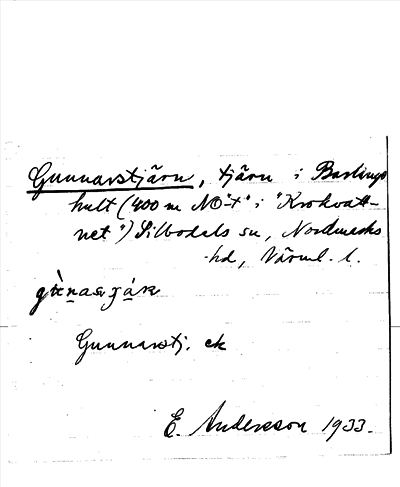 Gunnarstjärn, tjärn i Barlings
hult (400 m NO "t" i "Krokvatt-
net") Silbodals sn, Nordmarks
hd, Värml. l.
Gunnarstj. ek
E. Andersson 1933.